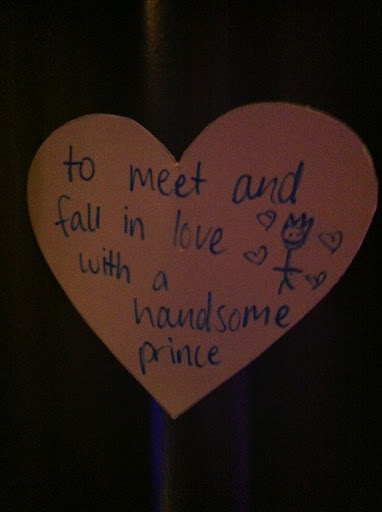 to meet and
fall in love
with a
handsome
prince